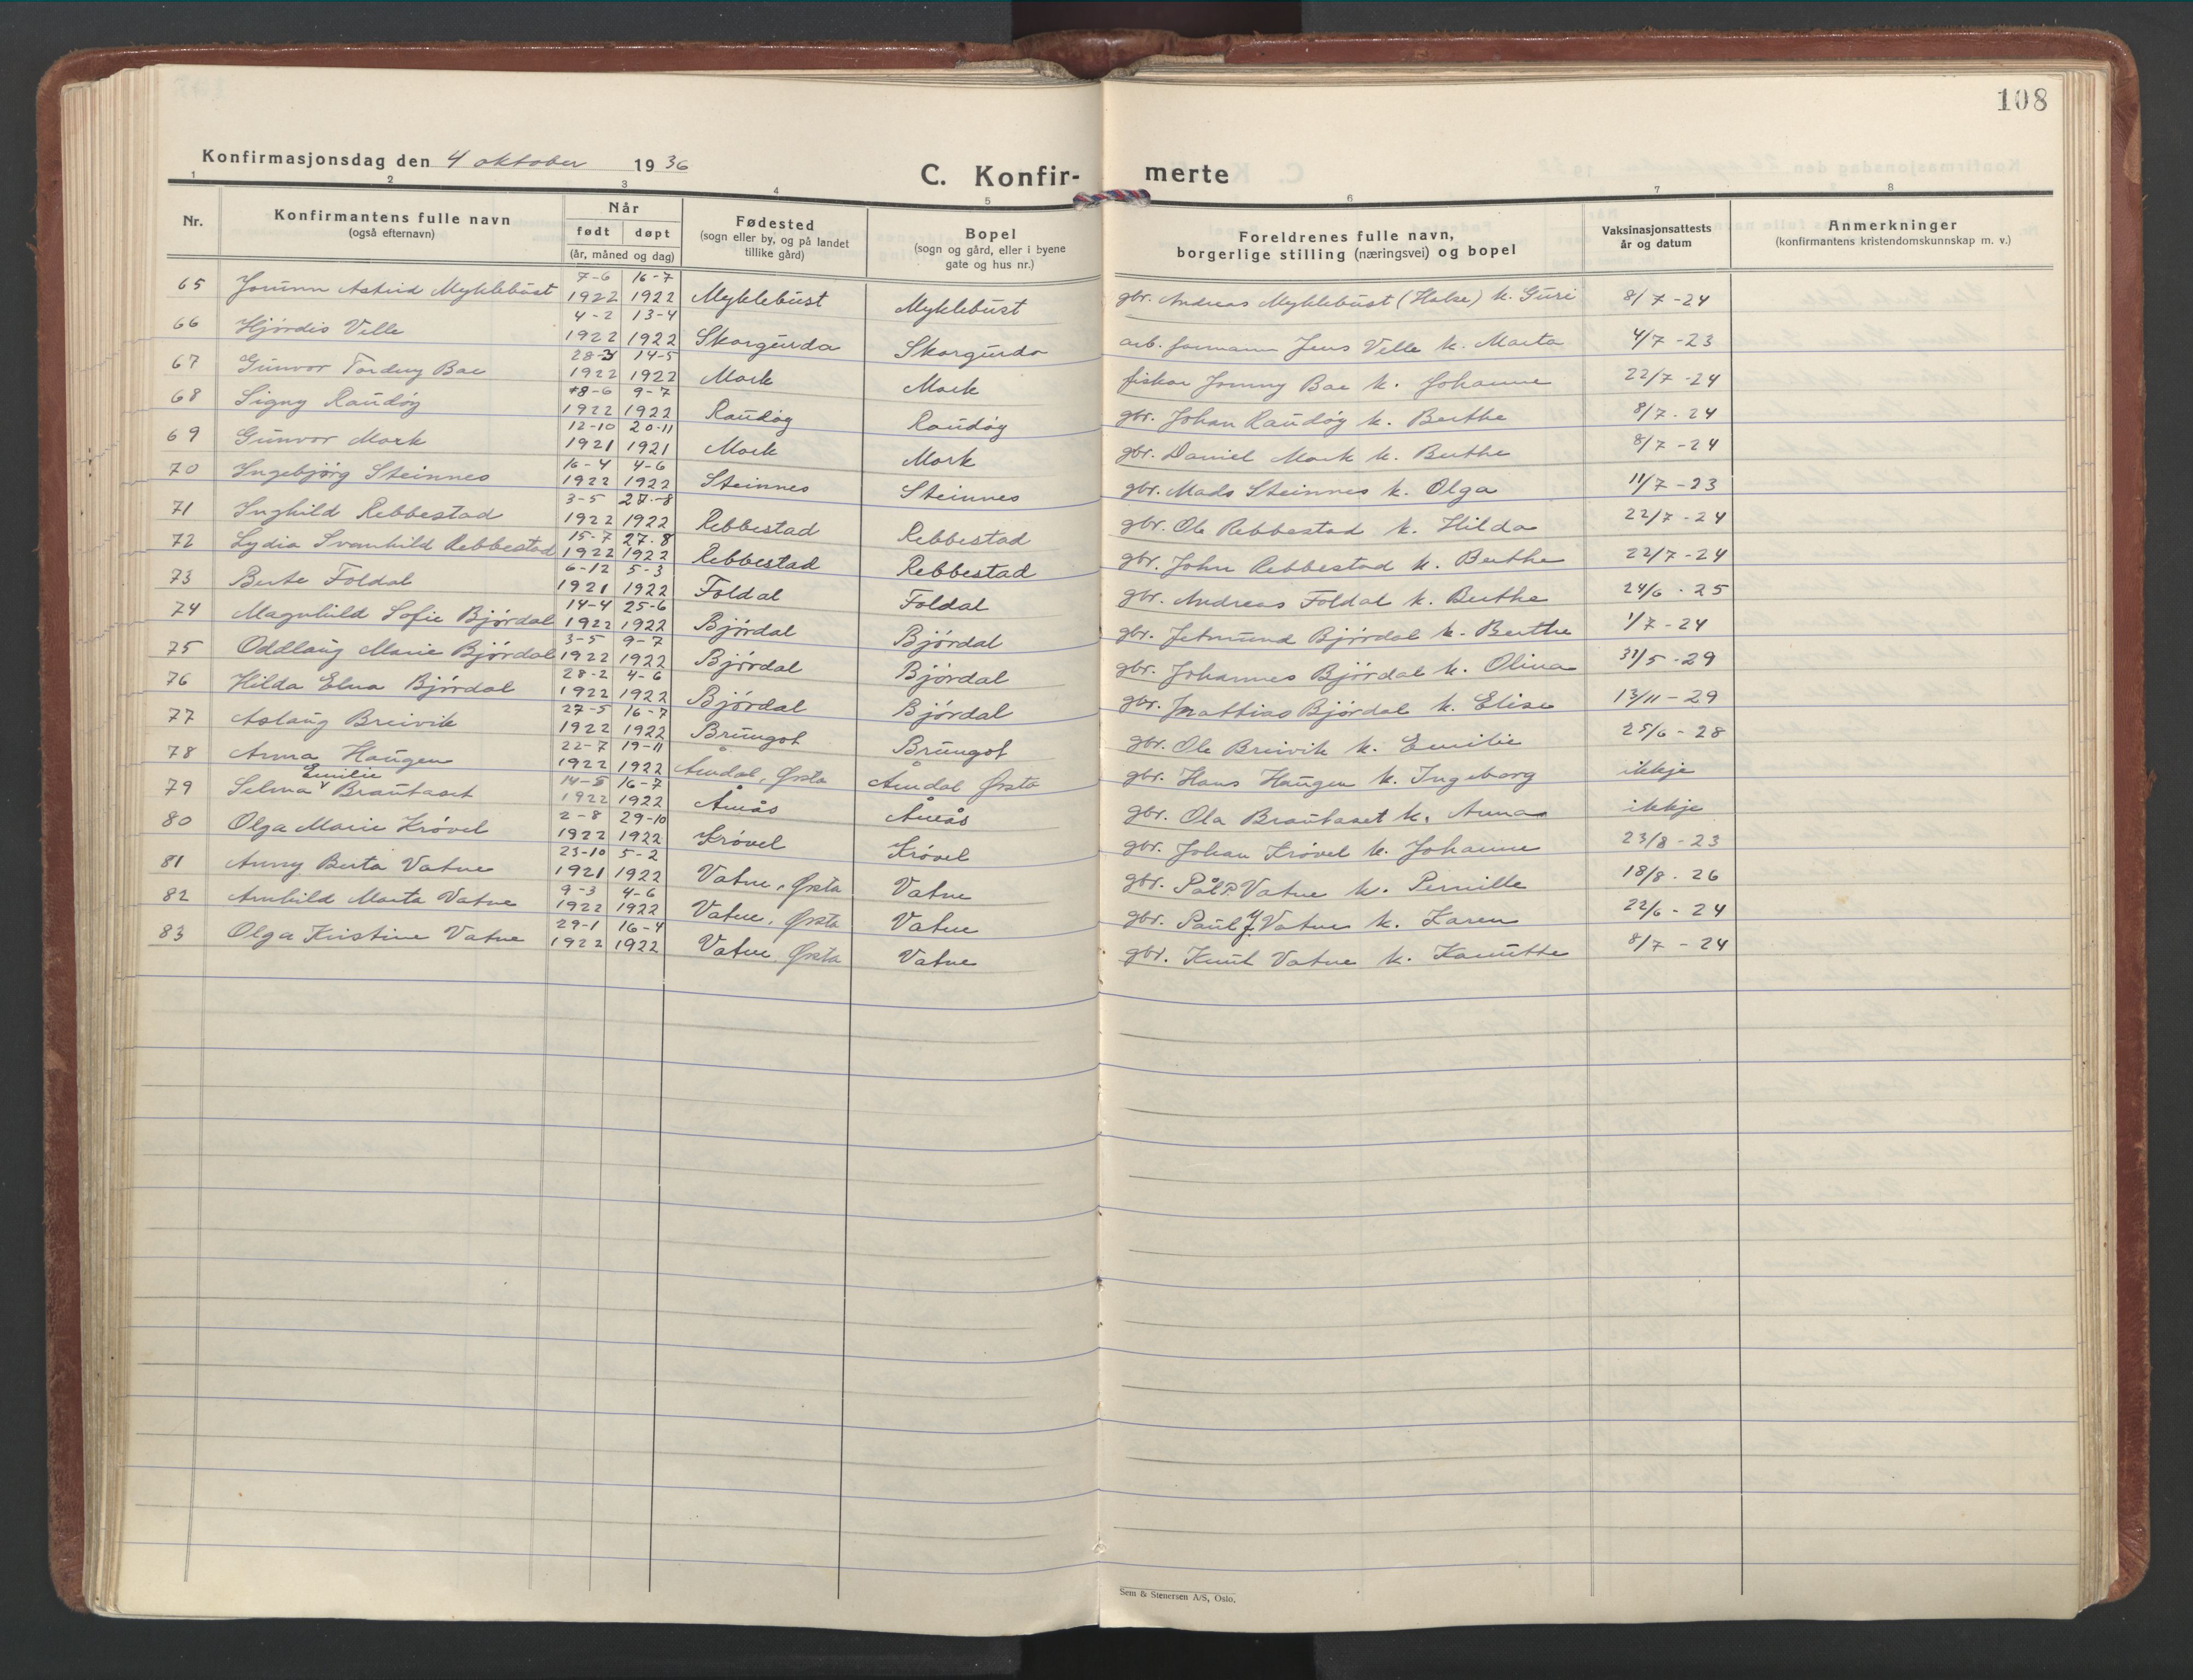 108
Konfirmasjonsdag den 4 oktober 1936
C. Konfir- merte
1 2 3 4 5 6 7 8
Nr. Konfirmantens fulle navn (også efternavn) Når født døpt (år, måned og dag) Fødested (sogn eller by, og på landet tillike gård) Bopel (sogn og gård, eller i byene gate og hus nr.) Foreldrenes fulle navn, borgerlige stilling (næringsvei) og bopel Vaksinasjonsattests år og datum Anmerkninger (konfirmantens kristendomskunnskap m. v.)
65 Jorunn Astrid Myklebust 7-6 1922 16-7 1922 Myklebust Myklebust gbr. Andreas Myklebust (Halse) k. Guri 8/7-24
66 Hjørdis Velle 4-2 1922 13-4 1922 Skorgurda Skorgurda arb. formann Jens Velle k. Marta 4/7-23
67 Gunvor Tordny Bae 28-3 1922 14-5 1922 Mork Mork fiskar Jonny Bae k. Johanne 22/7-24
68 Signy Raudøy 8-6 1922 9-7 1922 Raudøy Raudøy gbr. Johan Raudøy k. Berthe 8/7-24
69 Gunvor Mork 12-10 1921 20-11 1921 Mork Mork gbr. Daniel Mork k. Berthe 8/7-24
70 Ingebjørg Steinnes 16-4 1922 4-6 1922 Steinnes Steinnes gbr. Mads Steinnes k. Olga 11/7-23
71 Inghild Rebbestad 3-5 1922 27-8 1922 Rebbestad Rebbestad gbr. Ole Rebbestad k. Hilda 22/7-24
72 Lydia Svanhild Rebbestad 15-7 1922 27-8 1922 Rebbestad Rebbestad gbr. John Rebbestad k. Berthe 22/7-24
73 Berte Foldal 6-12 1921 5-3 1922 Foldal Foldal gbr. Andreas Foldal k. Berthe 24/6-25
74 Magnhild Sofie Bjørdal 14-4 1922 25-6 1922 Bjørdal Bjørdal gbr. Jetmund Bjørdal k. Berthe 1/7-24
75 Oddlaug Marie Bjørdal 3-5 1922 9-7 1922 Bjørdal Bjørdal gbr. Johannes Bjørdal k. Olina 31/5-29
76 Hilda Elna Bjørdal 28-2 1922 4-6 1922 Bjørdal Bjørdal gbr. Mattias Bjørdal k. Elise 13/11-29
77 Aslaug Breivik 27-5 1922 16-7 1922 Brungot Brungot gbr. Ole Breivik k. Emilie 25/6-28
78 Anna Haugen 22-7 1922 19-11 1922 Åmdal, Ørsta Åmdal Ørsta gbr. Hans Haugen k. Ingeborg ikkje
79 Selma Emilie Brautaset 14-5 1922 16-7 1922 Åmås Åmås gbr. Ola Brautaset k. Anna ikkje
80 Olga Marie Krøvel 2-8 1922 29-10 1922 Krøvel Krøvel gbr. Johan Krøvel k. Johanne 23/8-23
81 Anny Berta Vatne 23-10 1921 5-2 1922 Vatne, Ørsta Vatne gbr. Pål P. Vatne k. Pernille 18/8-26
82 Arnhild Marta Vatne 9-3 1922 4-6 1922 Vatne, Ørsta Vatne gbr. Paul Vatne k. Karen 22/6-24
83 Olga Kristine Vatne 29-1 1922 16-4 1922 Vatne, Ørsta Vatne gbr. Knut Vatne k. Kanutte 8/7-24
Sem & Stenersen A/S, Oslo.